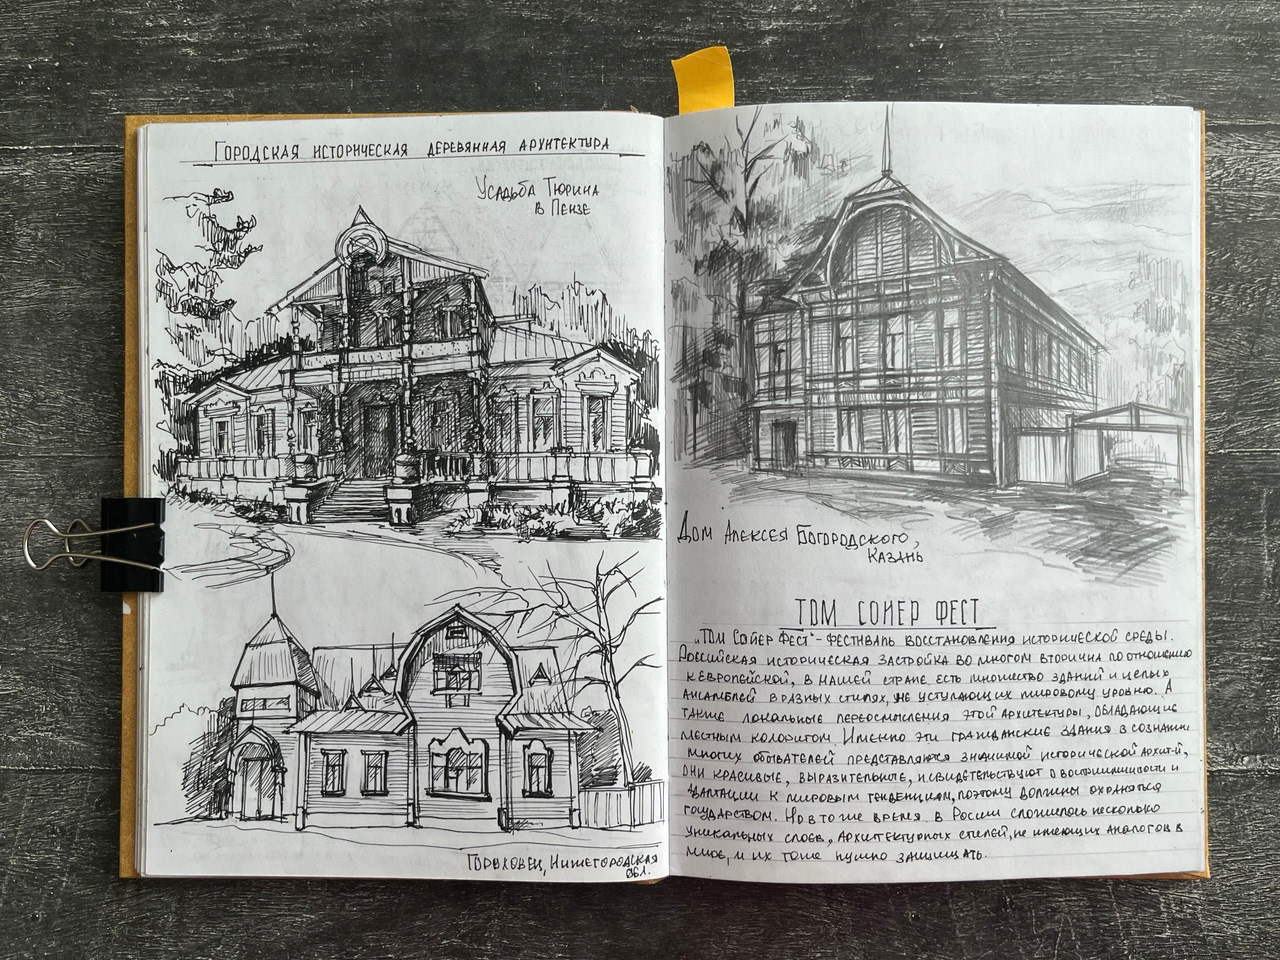 Городская историческая деревянная архитектура
Усадьба Тюрина
в Пензе
Гороховец, Нижегородская
обл.
Дом Алексея Богородского,
Казань
ТОМ СОЙЕР ФЕСТ
„Том Сойер Фест“ - фестиваль восстановления исторической среды.
Российская историческая застройка во многом вторична по отношению
к европейской, в нашей стране есть множество зданий и целых
ансамблей в разных стилях, не уступающих мировому уровню. А
также локальные переосмысления этой архитектуры, обладающие
местным колоритом. Именно эти гражданские здания в сознании
многих обывателей представляются значимой исторической архит-й,
они красивые, выразительные, и свидетельствуют о восприимчивости и
адаптации к мировым тенденциям, поэтому должны охраняться
государством. Но в то же время, в Росии сложилось несколько
уникальных слоёв, архитектурных стилей, не имеющих аналогов в
мире, и их тоже нужно защищать.